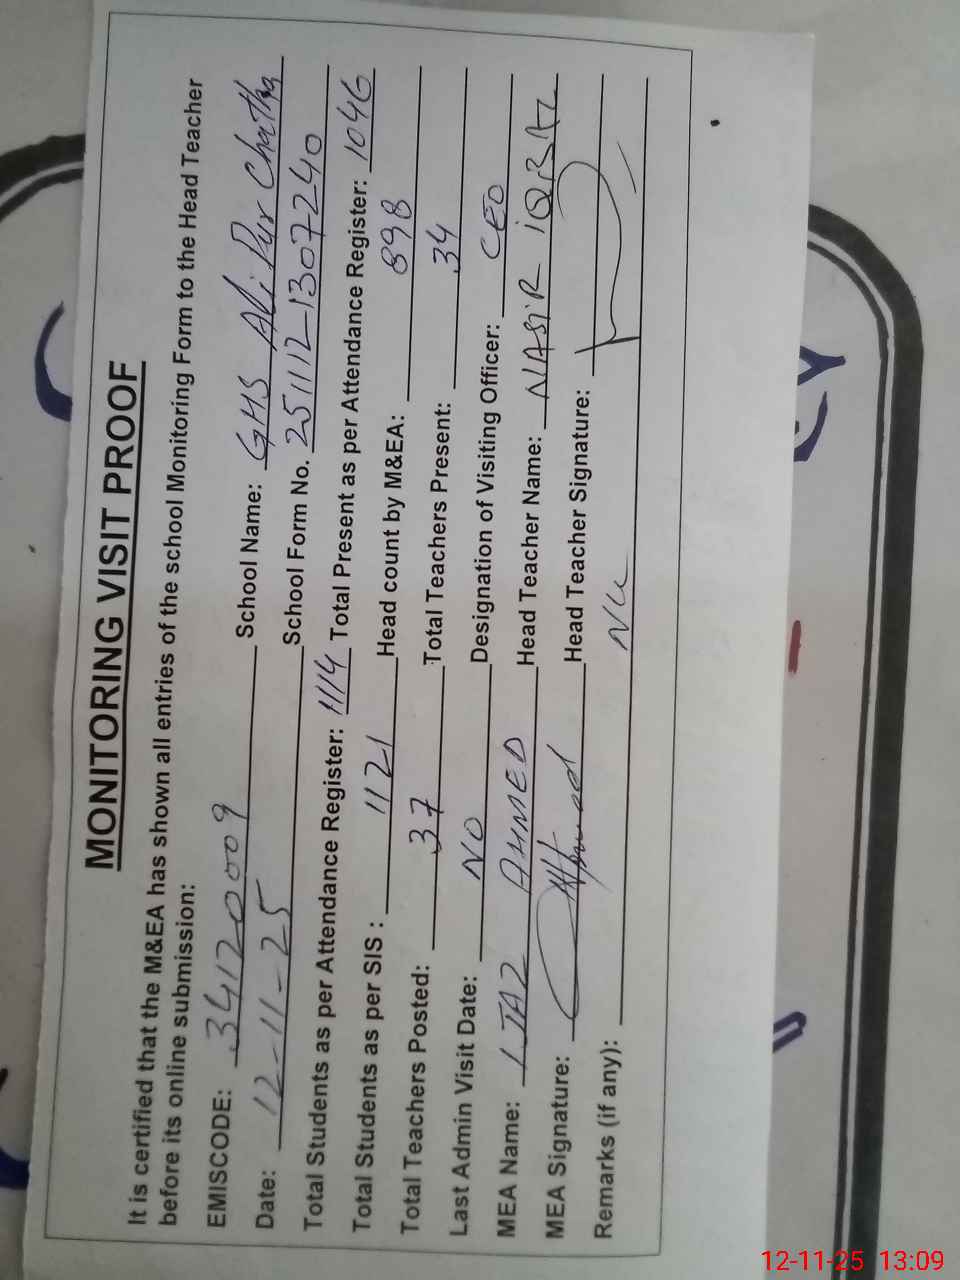 MONITORING VISIT PROOF
It is certified that the M&EA has shown all entries of the school Monitoring Form to the Head Teacher
before its online submission:
EMISCODE: 34120009 School Name: GHS Ali Pur Chatha
Date: 12-11-25 School Form No. 251112-1307240
Total Students as per Attendance Register: 1114 Total Present as per Attendance Register: 1046
Total Students as per SIS : 1121 Head count by M&EA: 898
Total Teachers Posted: 37 Total Teachers Present: 34
Last Admin Visit Date: NO Designation of Visiting Officer: CEO
MEA Name: IJAZ AHMED Head Teacher Name: NASIR IQBAL
MEA Signature: Head Teacher Signature:
Remarks (if any): Nil
12-11-25 13:09